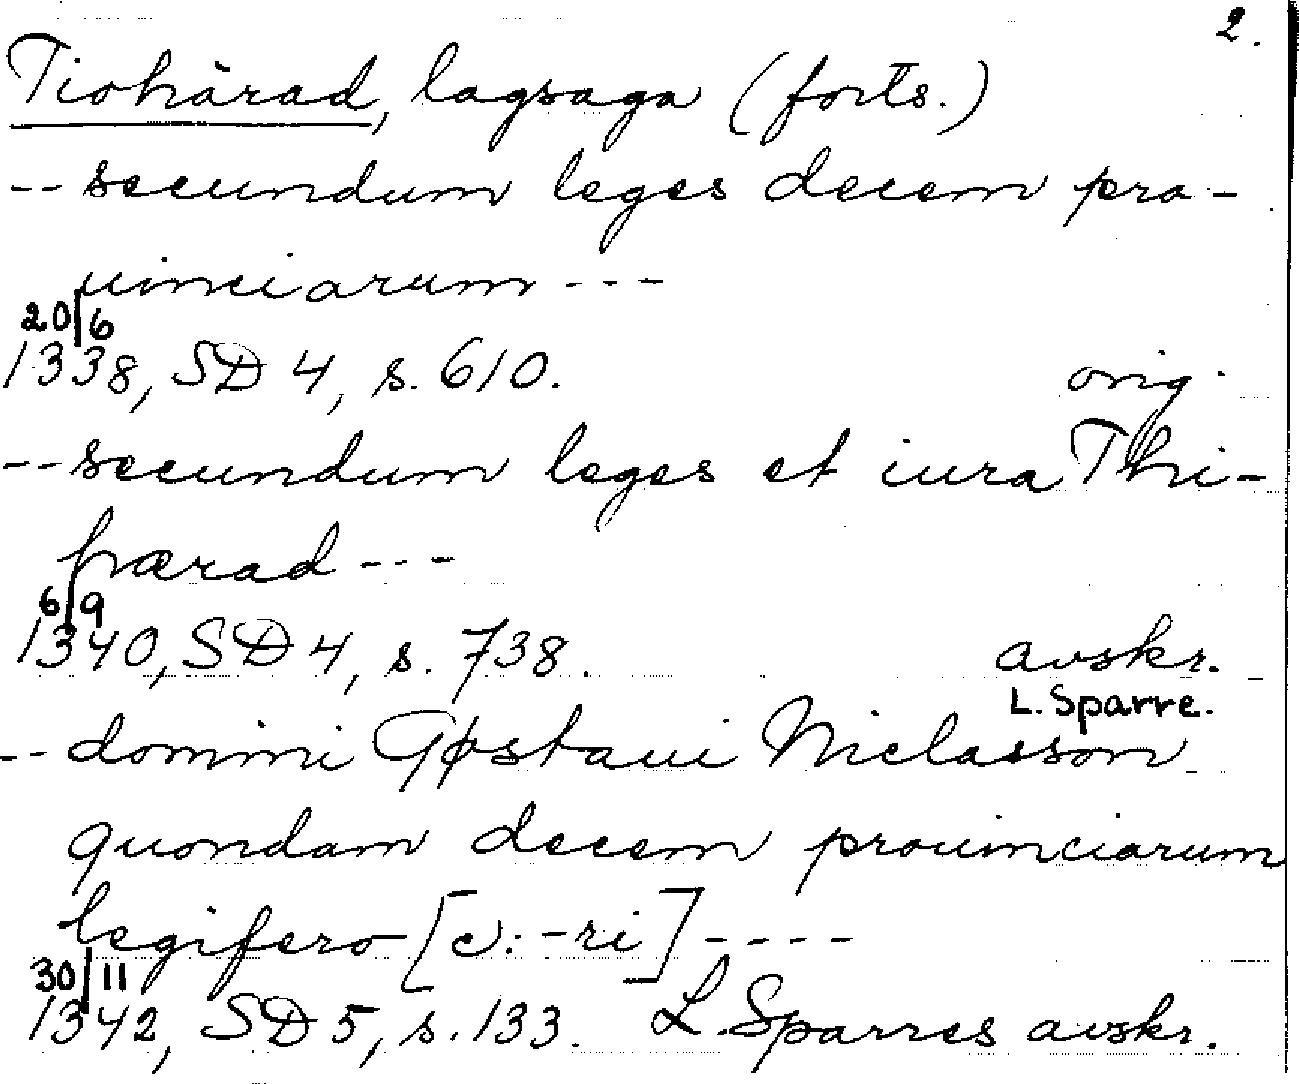 2.
Tiohärad, lagsaga (forts.)
-- secundum leges decem pro-
uinciarum ---
20/6
1338, SD 4, s. 610. orig.
-- secundum leges et iura Thi-
hærad ---
6/9
1340, SD 4, s. 738. avskr.
L. Sparre.
-- domini Gøstaui Niclasson
quondam decem prouinciarum
legifero [ɔ: -ri] ----
30/11
1342, SD 5, s. 133. L. Sparres avskr.